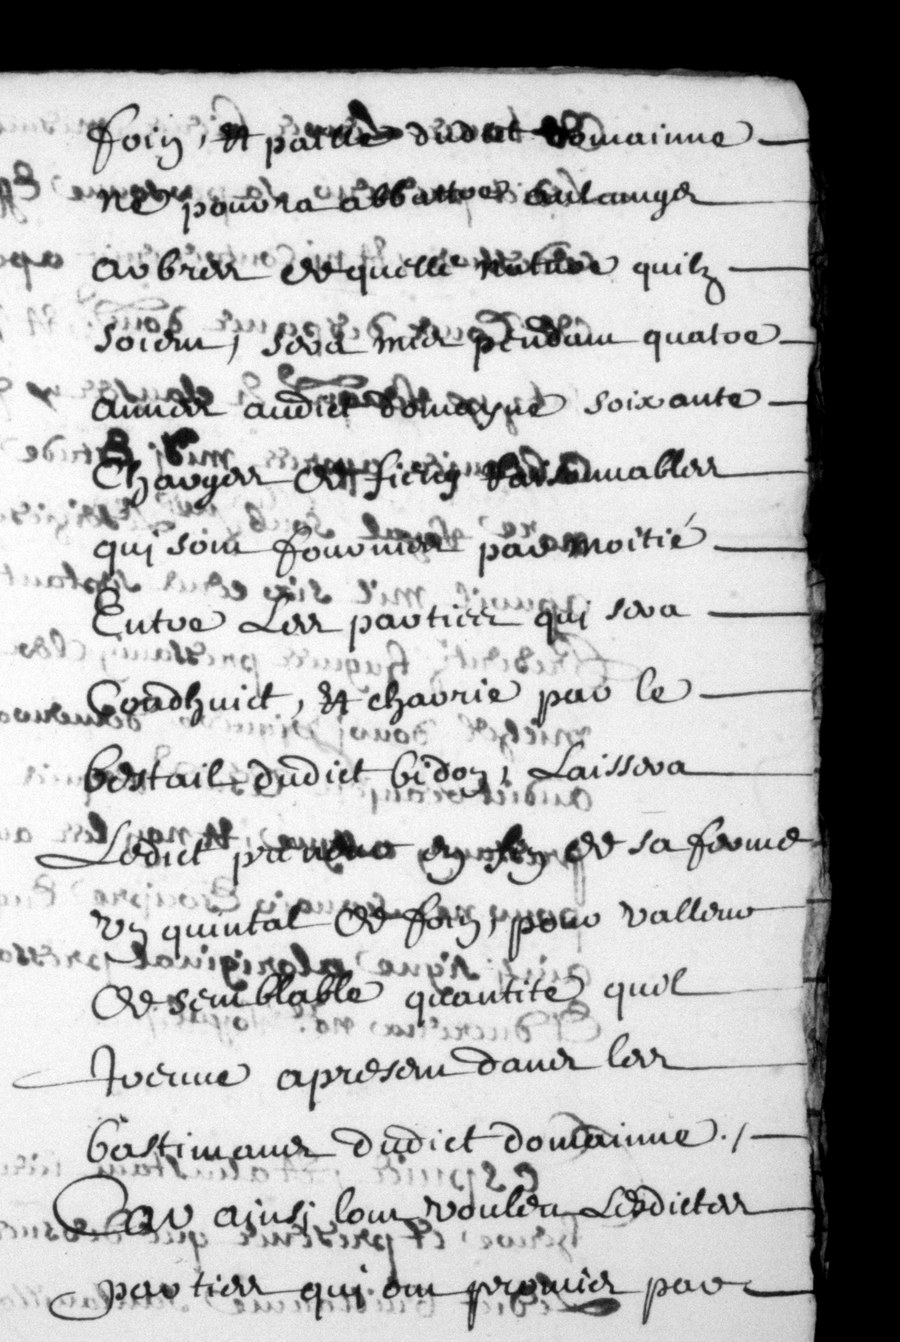 foin, et paille dudict domainne
ne pourra abbattre aulcungs
arbres de quelle nature quilz
soient, sera mis pendant quatre
annees audict domayne soixante
Charges de fiens
qui sont fournies par moitié
Entre Les parties qui sera
Conduict, et charrie par le
bestail dudict bidon, Laissera
Ledict preneur en fin de sa ferme
un quintal de foin, pour valleur
de semblable quantité quil
treuve apresent dans les
bastimans dudict domainne ./
Car ainsi lont voulu Lesdictes
parties qui ont promis par